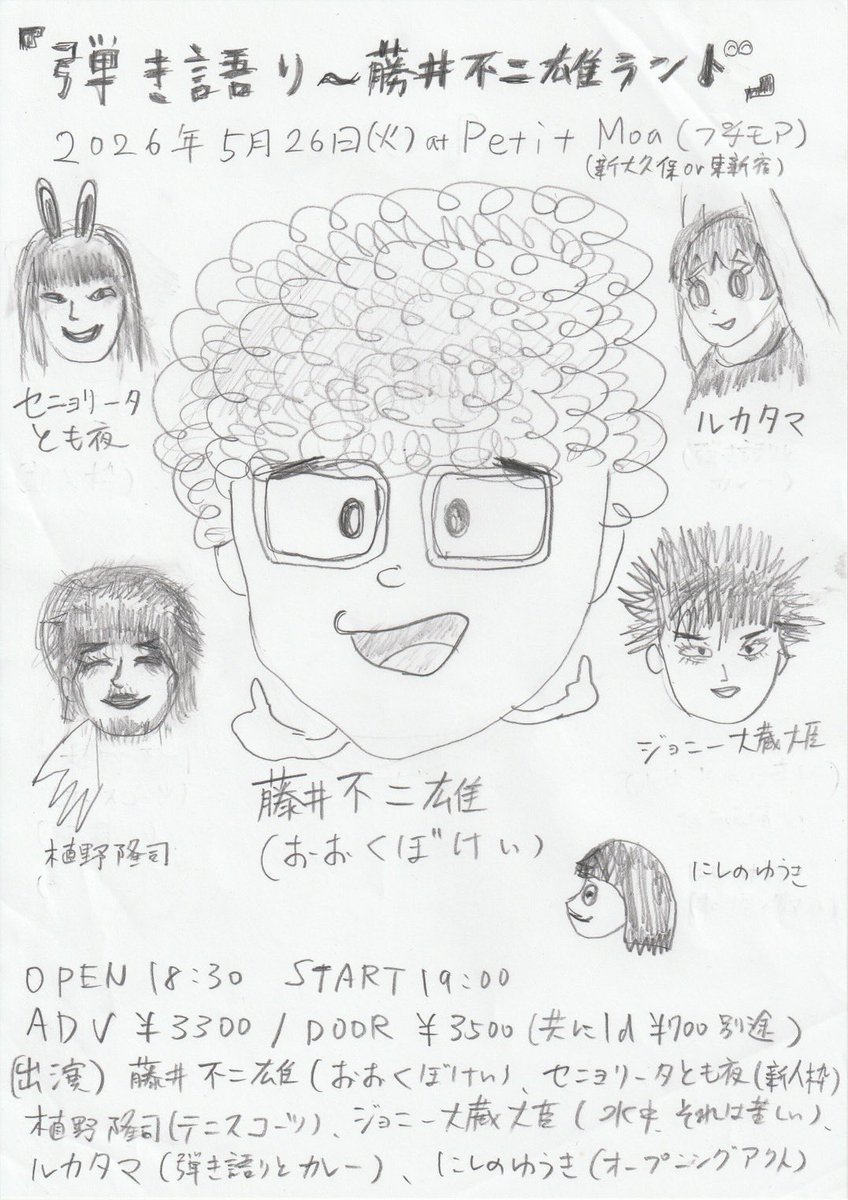 『弾き語り～藤井不二雄ランド』
2026年5月26日(火) at Petit Moa (プチモア)
(新大久保or東新宿)
セニョリータ
とも夜
ルカタマ
ジョニー大蔵大臣
植野隆司
藤井不二雄
(おおくぼけい)
にしのゆうき
OPEN 18:30 START 19:00
ADV ¥3300 / DOOR ¥3500 (共に1d ¥700 別途)
(出演) 藤井不二雄(おおくぼけい)、セニョリータとも夜(新人枠)
植野隆司(テニスコーツ)、ジョニー大蔵大臣(水中、それは苦しい)、
ルカタマ(弾き語りとカレー)、にしのゆうき(オープニングアクト)